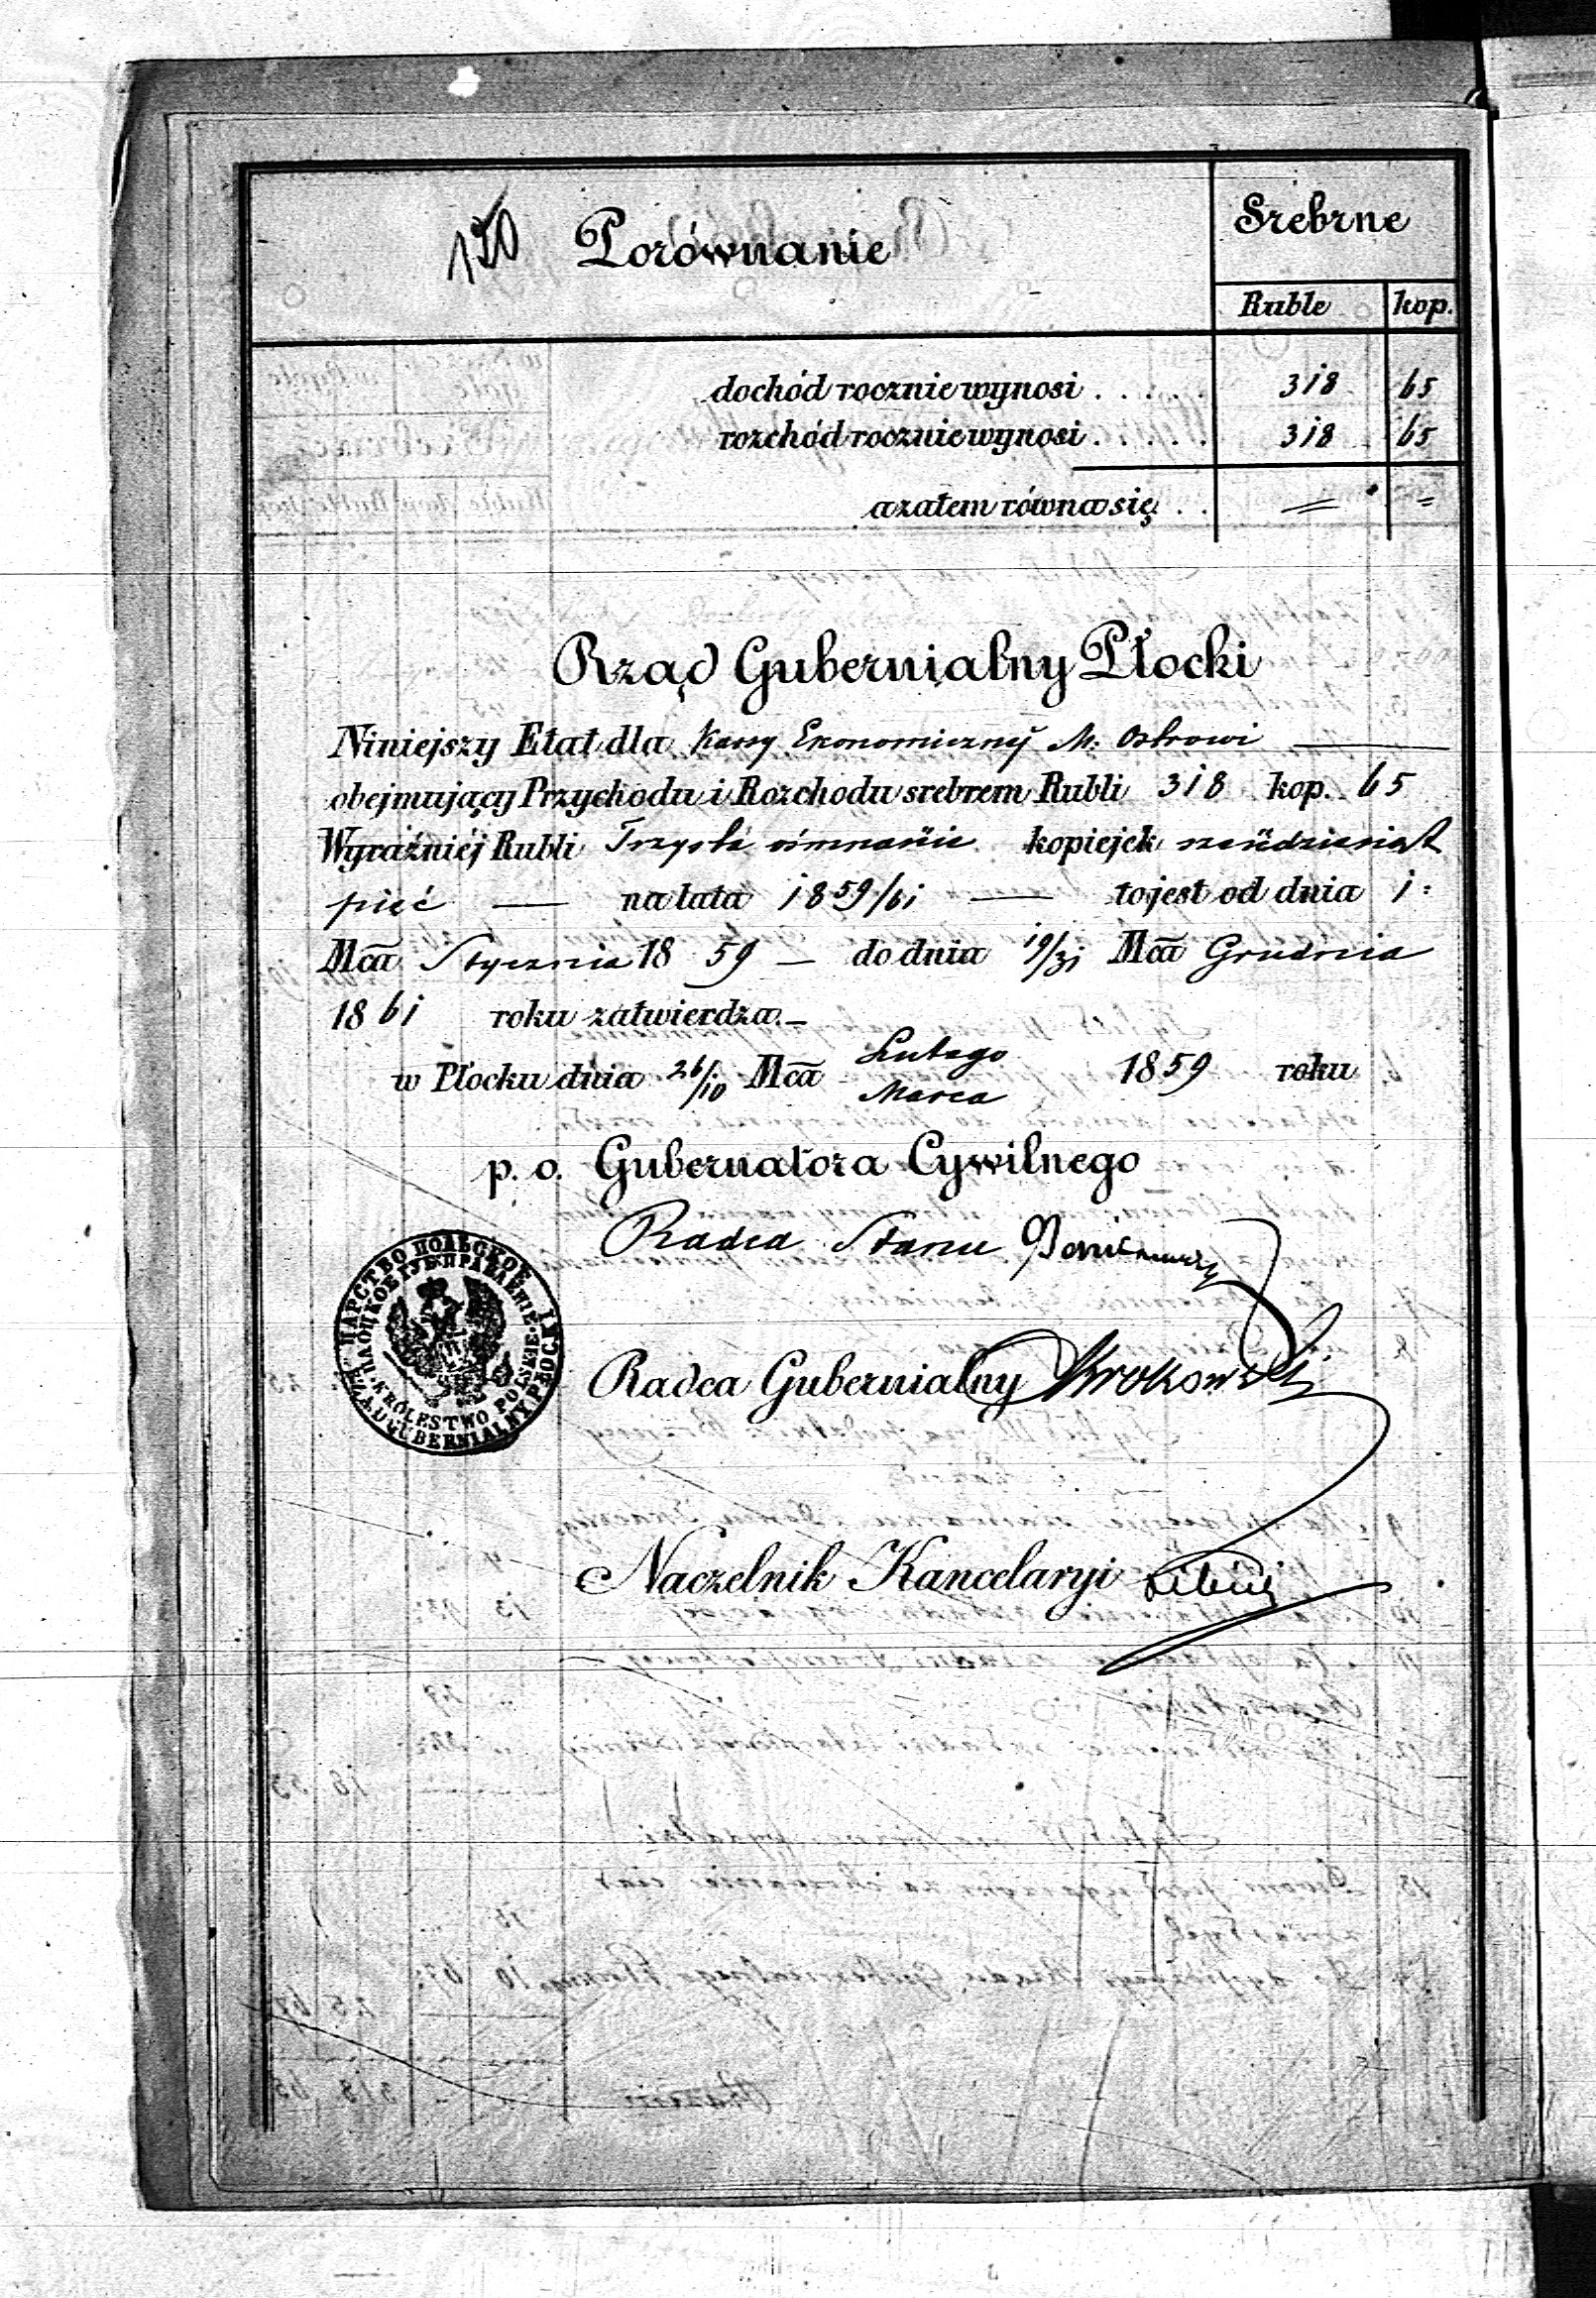 150 Porównanie
Srebrne
Ruble kop.
dochód rocznie wynosi . . . . . 318 65
rozchód rocznie wynosi . . . . . 318 65
a zatem równa się . . = =
Rząd Gubernialny Płocki
Niniejszy Etat dla Kassy Ekonomicznéj M: Ostrowi —
obejmujący Przychodu i Rozchodu srebrem Rubli 318 kop. 65
Wyraźniéj Rubli Trzysta ośmnaście kopiejek sześćdziesiąt
pięć — na lata 1859/61 — to jest od dnia 1:
Mca Stycznia 1859 — do dnia 19/31 Mca Grudnia
1861 roku zatwierdza.—
w Płocku dnia 26/10 Mca Lutego
Marca 1859 roku
p. o. Gubernatora Cywilnego
Radca Stanu
Radca Gubernialny Krokowski
Naczelnik Kancelaryi
ЦАРСТВО ПОЛЬСКОЕ
ПЛОЦКОЕ ГУБ: ПРАВЛЕНІЕ
KRÓLESTWO POLSKIE
RZĄD GUBERNIALNY PŁOCKI